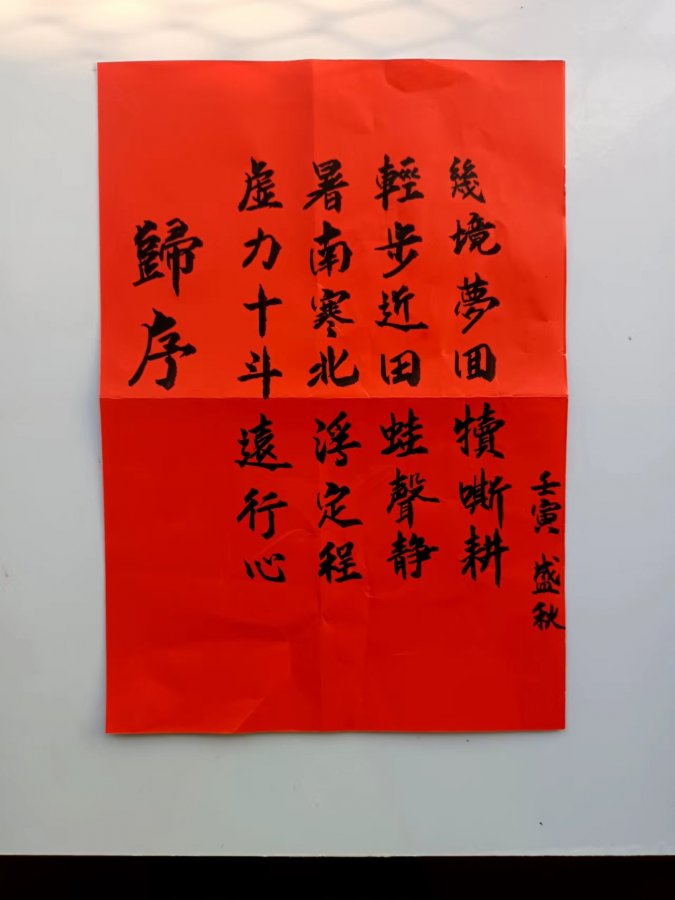 壬寅 盛秋
幾境夢囬犢嘶耕
輕步近田蛙聲静
暑南寒北浮定程
虛力十斗遠行心
歸序